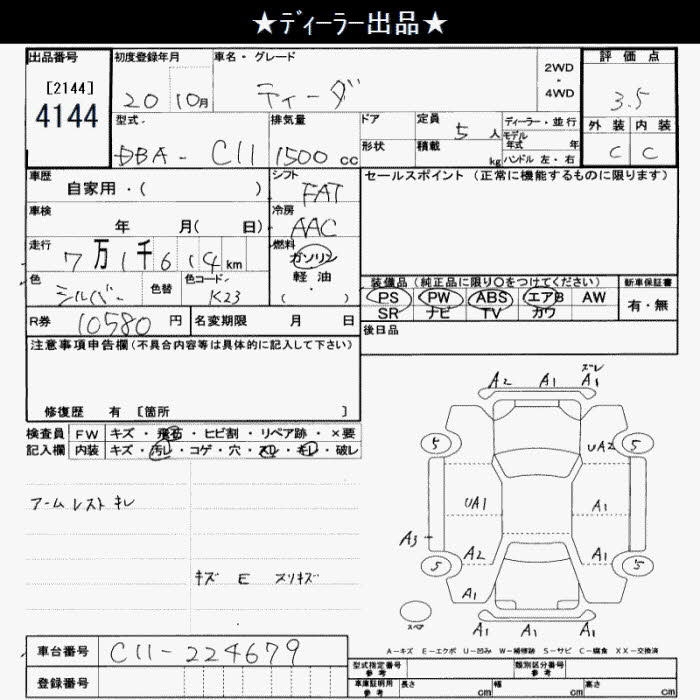 ★ディーラー出品★
出品番号 初度登録年月 車名・グレード 評価点
[2144]
4144
20 10月 ティーダ 2WD・4WD 3.5
型式 排気量 ドア 定員 5人 ディーラー・並行 外装 内装
DBA-C11 1500cc 形状 積載 kg モデル年式 年 C C
ハンドル 左・右
車歴 自家用・( ) シフト FAT セールスポイント(正常に機能するものに限ります)
車検 年 月( 日) 冷房 AAC
走行 7万1千614km 燃料 ガソリン
軽油
・
( )
色 シルバー 色替 色コード K23
装備品(純正品に限り○をつけてください) 新車保証書
PS PW ABS エアB AW 有・無
SR ナビ TV カワ
R券 10580円 名変期限 月 日 後日品
注意事項申告欄(不具合内容等は具体的に記入して下さい)
修復歴 有 [箇所 ]
検査員 FW キズ・飛石・ヒビ割・リペア跡・×要
記入欄 内装 キズ・汚レ・コゲ・穴・スレ・キレ・破レ
アームレストキレ
キズ E スリキズ
ズレ
A2 A1 A1
5 5
UA2
UA1 A1
A3
A2 A1
5 5
A1
スペア
A1 A1 A1
A-キズ E-エクボ U-凹み W-補修跡 S-サビ C-腐食 XX-交換済
車台番号 C11-224679
登録番号
型式指定番号 参考 類別区分番号 参考
車庫証明用 参考 長さ cm 幅 cm 高さ cm